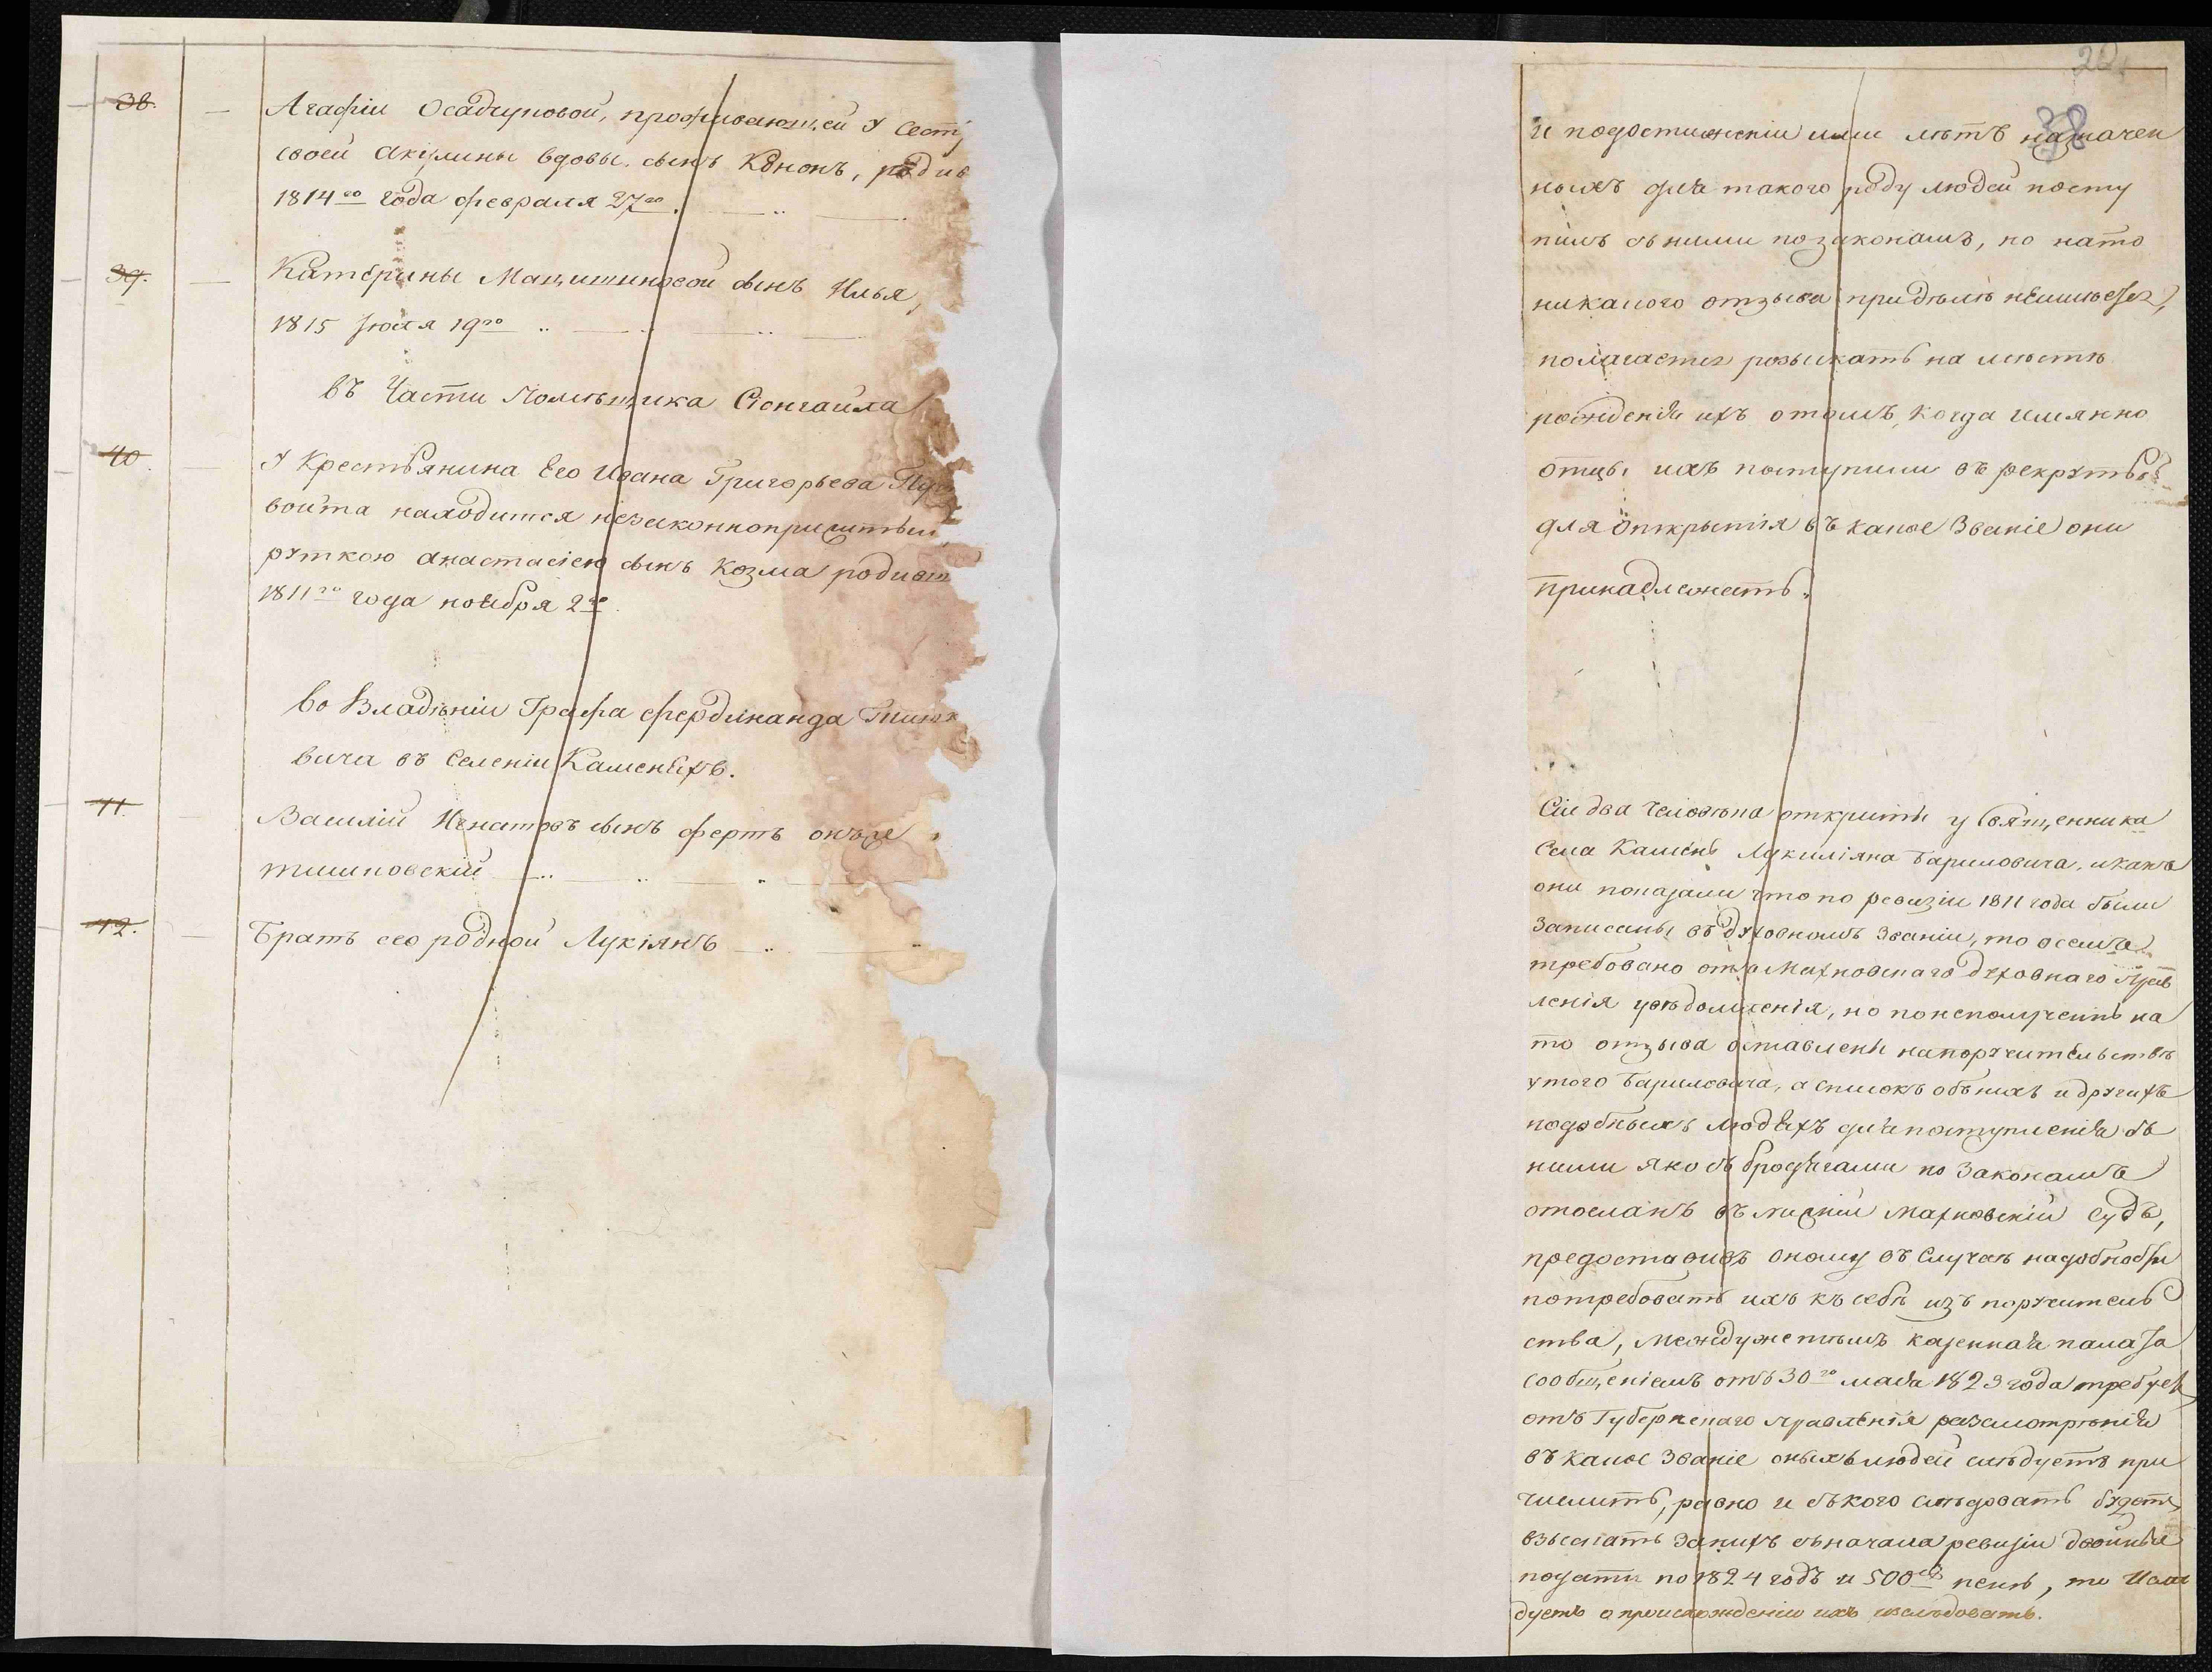 38.
Агафіи Осадчуковой, проживающей у сест
своей Акулины вдовы. сынъ Кононъ, родив
1814го года февраля 27го.
39.
Катерины сынъ Илья,
1815 Іюля 19го
въ Части Помѣщика
40.
У Крестьянина Его Ивана Григорьева
войта находится незаконноприжитый
руткою Анастасіею сынъ Козма родивш
1811го года ноября 2го.
во Владѣніи Графа Фердинанда Тишк
вича въ Селеніи Каменѣхъ.
41.
Василій Игнатовъ сынъ
42.
Братъ его родной Лукіянъ
20.
38
и подостиженіи ими лѣтъ назначен
ныхъ для такого роду людей посту
пилъ съ ними позаконамъ, но нато
никакого отзыва придѣлѣ неимѣется,
полагается розыскать на мѣстѣ
рожденія ихъ отомъ, когда имянно
отцы ихъ поступили въ рекруты
для открытія въ какое Званіе они
принадлежатъ.
Сіи два человѣка открыты у Священника
Села Камень Лукиліяна Бариловича, икакъ
они показали что по ревизіи 1811 года были
Записаны въ духовномъ Званіи, то осемъ
требовано отъ Махновскаго Духовнаго Прав
ленія увѣдомленія, но понеполученію на
то отзыва оставлены напоручительствѣ
утого Бариловича, а списокъ обънихъ идругихъ
подобныхъ людѣхъ для поступленія съ
ними яко съ бродягами по Законамъ
отосланъ въ Махновскій Судъ,
предоставивъ оному въ Случаѣ надобности
потребовать ихъ къ себѣ изъ поручитель
ства, Междужетѣмъ казенная палата
сообщеніемъ отъ 30го мая 1823 года требуетъ
отъ Губернскаго правленія разсмотрѣнія
въ какое Званіе оныхъ людей слѣдуетъ при
числить, равно и съкого слѣдовать будетъ
взыскать Занихъ съначала ревизіи двойныя
подати по 1824 годъ и 500 пени, то
дуетъ о происхожденіи ихъ изслѣдовать.